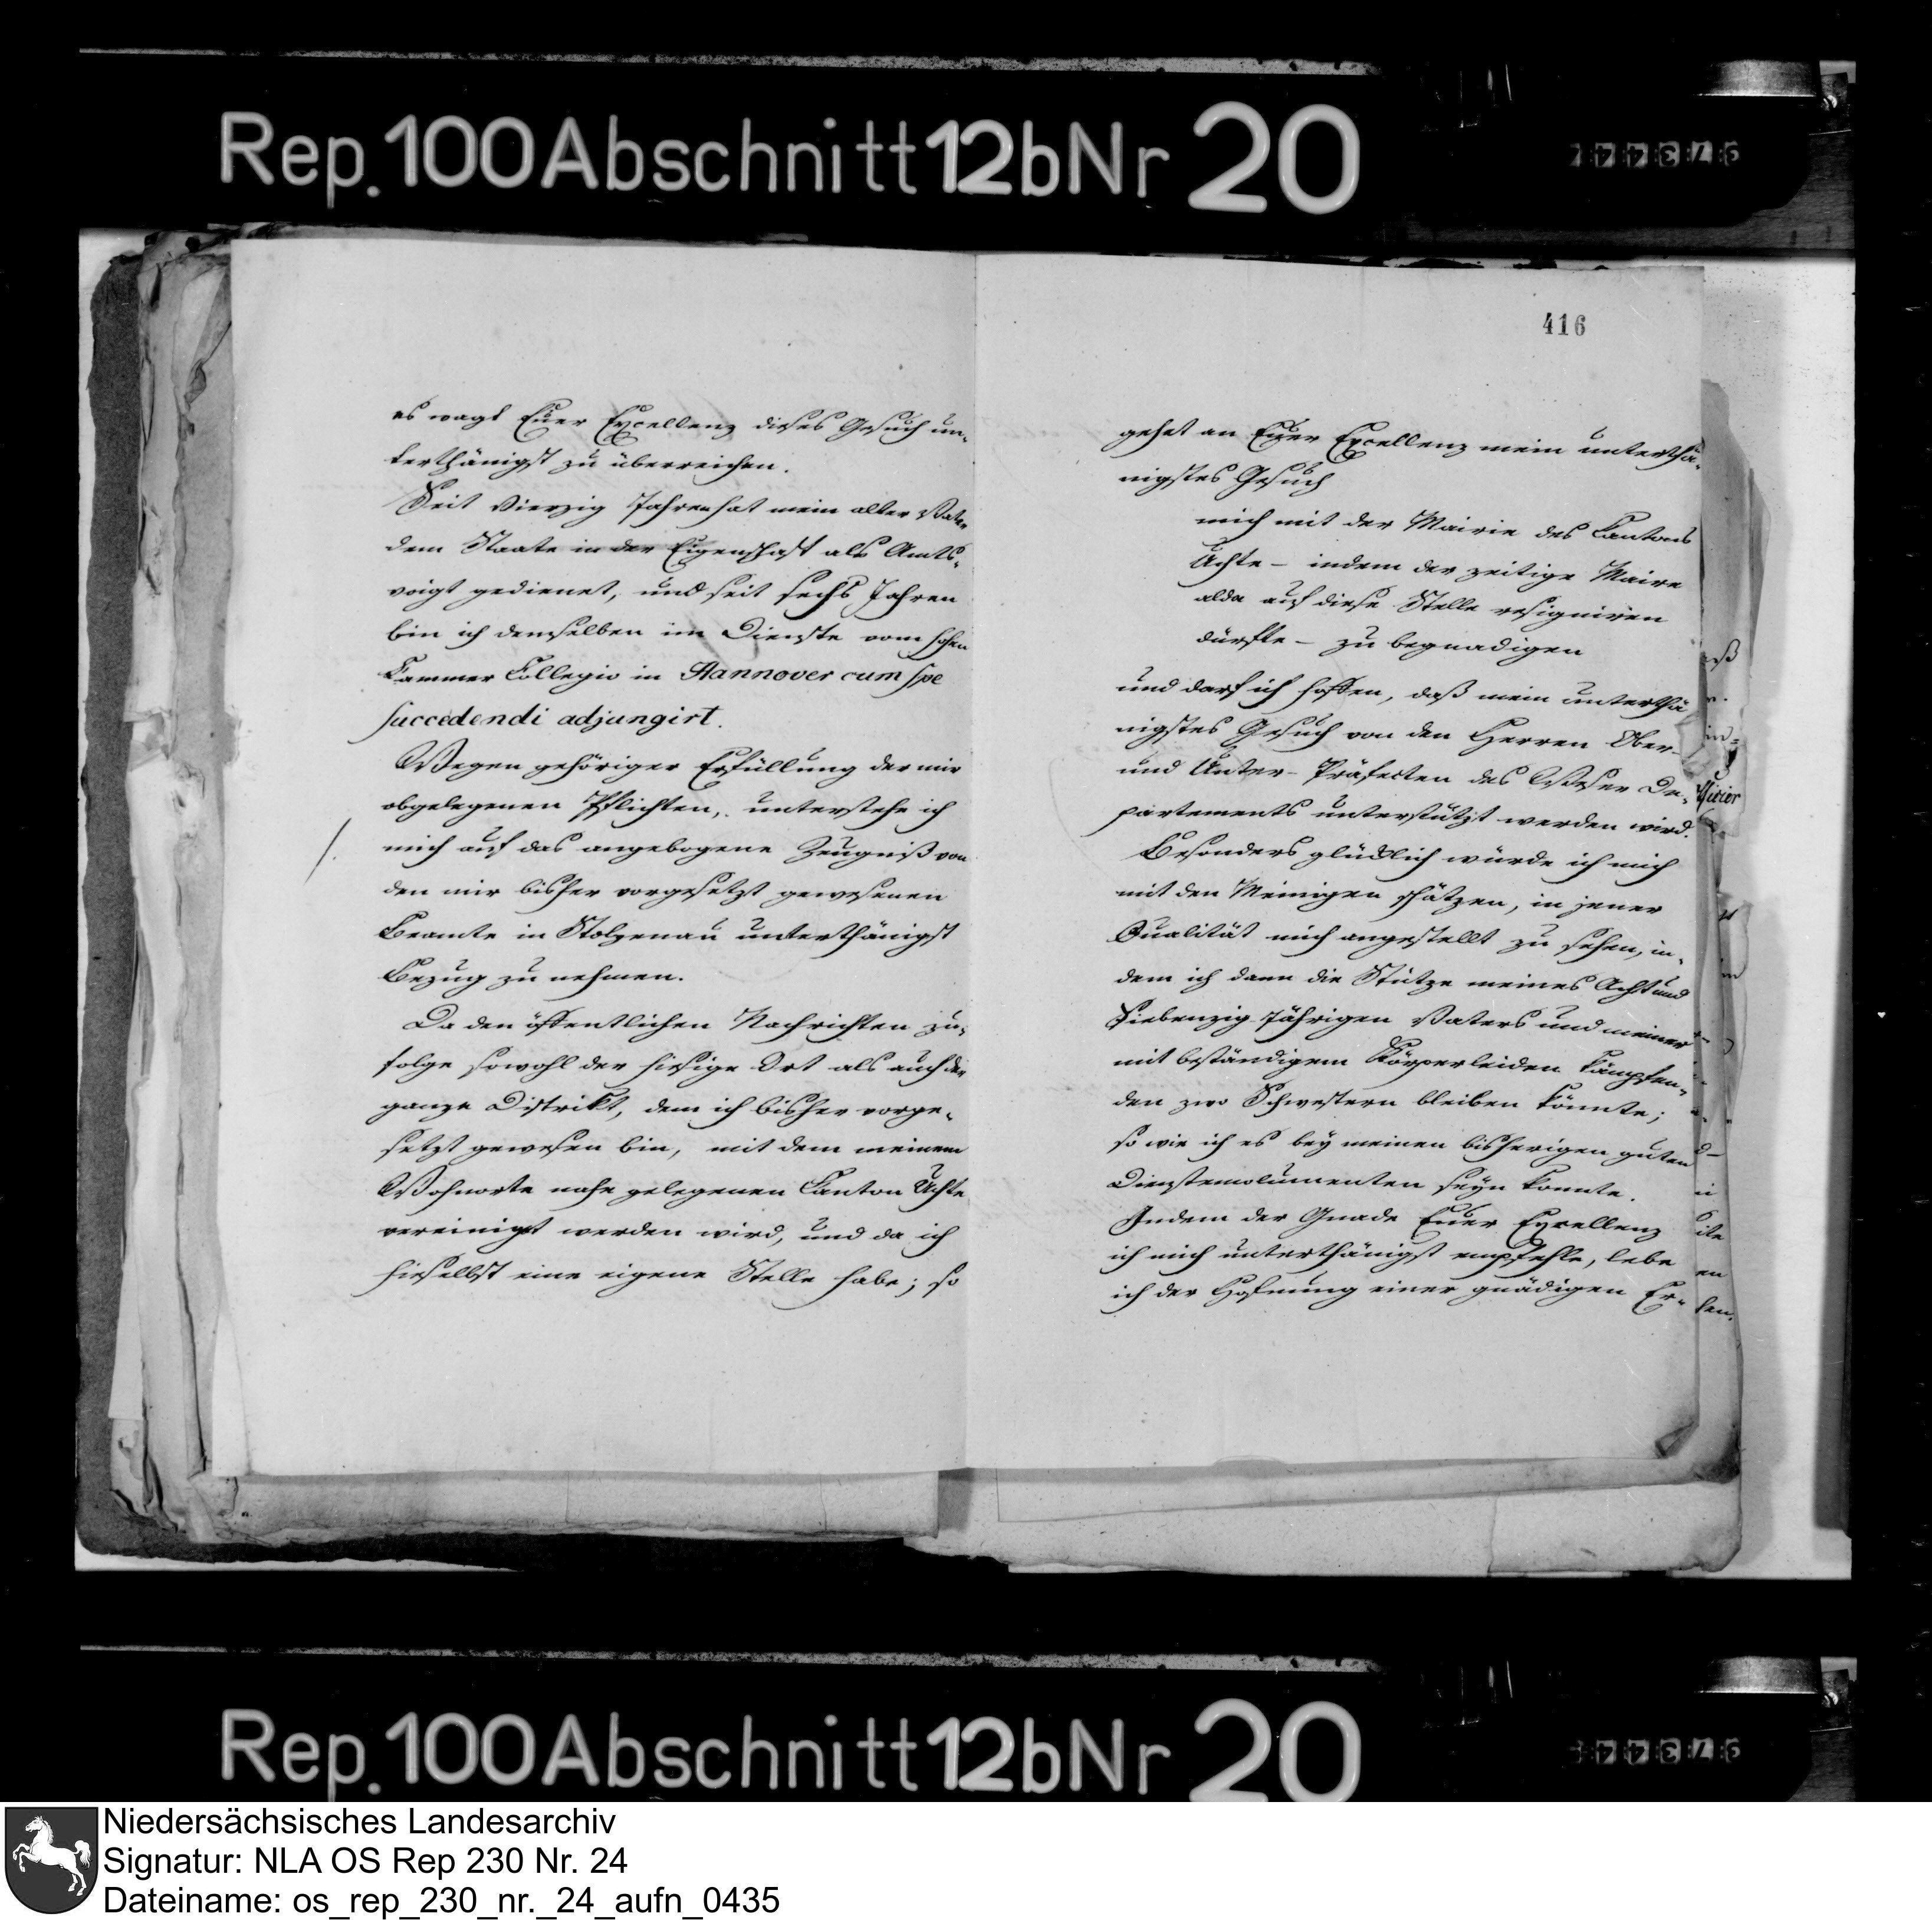 Rep. 100 Abschnitt 12b Nr 20
es wagt Euer Excellenz dieses Gesuch un-
terthänigst zu überreichen.
Seit Vierzig Jahren hat mein alter Vater
dem Staate in der Eigenschaft als Amts-
voigt gedienet, und seit sechs Jahren
bin ich demselben im Dienste vom hohen
Cammer Collegio in Hannover cum spe
succedendi adjungirt.
Wegen gehöriger Erfüllung der mir
obgelegenen Pflichten, unterstehe ich
/. mich auf das angebogene Zeugniß von
den mir bisher vorgesetzt gewesenen
Beamte in Stolzenau unterthänigst
Bezug zu nehmen.
Da den öffentlichen Nachrichten zu-
folge sowohl der hiesige Ort als auch der
ganze Distrikt, dem ich bisher vorge-
setzt gewesen bin, mit dem meinem
Wohnorte nahe gelegenen Canton Uchte
vereinigt werden wird, und da ich
hieselbst eine eigene Stelle habe; so
416
gehet an Euer Excellenz mein unterthä-
nigstes Gesuch
mich mit der Mairie des Cantons
Uchte - indem der zeitige Maire
alda auf diese Stelle resigniren
dürfte - zu begnadigen
und darf ich hoffen, daß mein unterthä
nigstes Gesuch von den Herren Ober-
und Unter-Präfecten des Weser De-
partements unterstützt werden wird.
Besonders glücklich würde ich mich
mit den Meinigen schätzen, in jener
Qualität mich angestellt zu sehen, in-
dem ich dann die Stütze meines Acht und
Siebenzig Jährigen Vaters und meiner
mit beständigem Körperleiden kämpfen-
den zwo Schwestern bleiben könnte;
so wie ich es bey meinen bisherigen guten
Dienstemolumenten seyn konnte.
Indem der Gnade Euer Excellenz
ich mich unterthänigst empfehle, lebe
ich der Hofnung einer gnädigen Er-
Rep. 100 Abschnitt 12b Nr 20
Niedersächsisches Landesarchiv
Signatur: NLA OS Rep 230 Nr. 24
Dateiname: os_rep_230_nr._24_aufn_0435